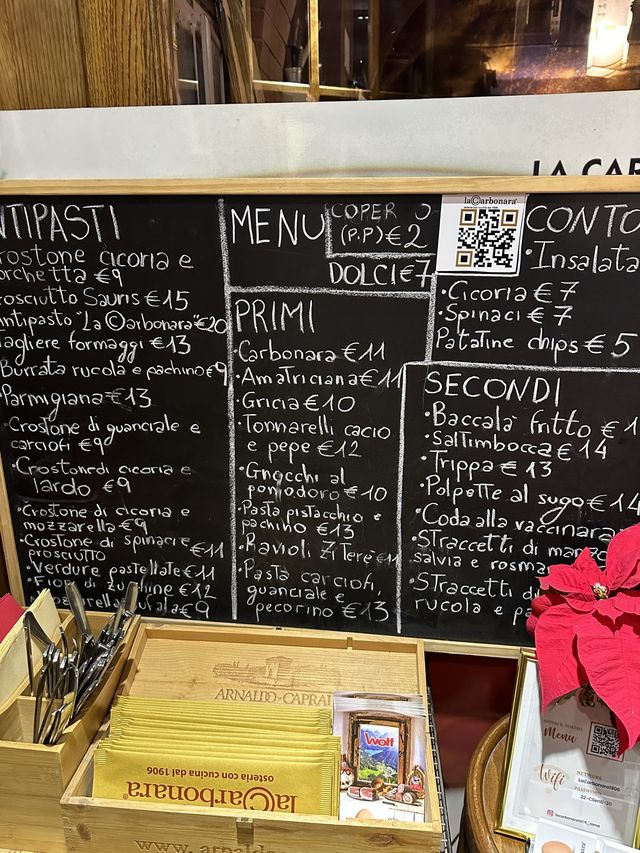 LA CAR
NTIPASTI
rostone cicoria e
orchetta €9
rosciutto Sauris €15
ntipasto "La Carbonara" €20
agliere formaggi €13
Burrata rucola e pachino €9
Parmigiana €13
Crostone di guanciale e
carciofi €9
Crostone di cicoria e
lardo €9
Crostone di cicoria e
mozzarella €9
Crostone di spinaci e
prosciutto €11
Verdure pastellate €11
Fiori di zucchine €12
€9
MENU
COPER O
(P.P) €2
DOLCI €7
PRIMI
Carbonara €11
Amatriciana €11
Gricia €10
Tonnarelli cacio
e pepe €12
Gnocchi al
pomodoro €10
Pasta pistacchio e
pachino €13
Ravioli
Pasta carciofi,
guanciale e
pecorino €13
laCarbonara
CONTO
Insalata
Cicoria €7
Spinaci €7
Patatine chips €5
SECONDI
Baccalà fritto €1
Saltimbocca €14
Trippa €13
Polpette al sugo €14
Coda alla vaccinara
Straccetti di manzo
salvia e rosma
Straccetti di
rucola e pa
ARNALDO-CAPRAI
laCarbonara
osteria con cucina dal 1906
Wolf
www. arnaldo
Menu
Wifi
NETWORK
LaCarbonara1906
PASSWORD
22-Clienti-20